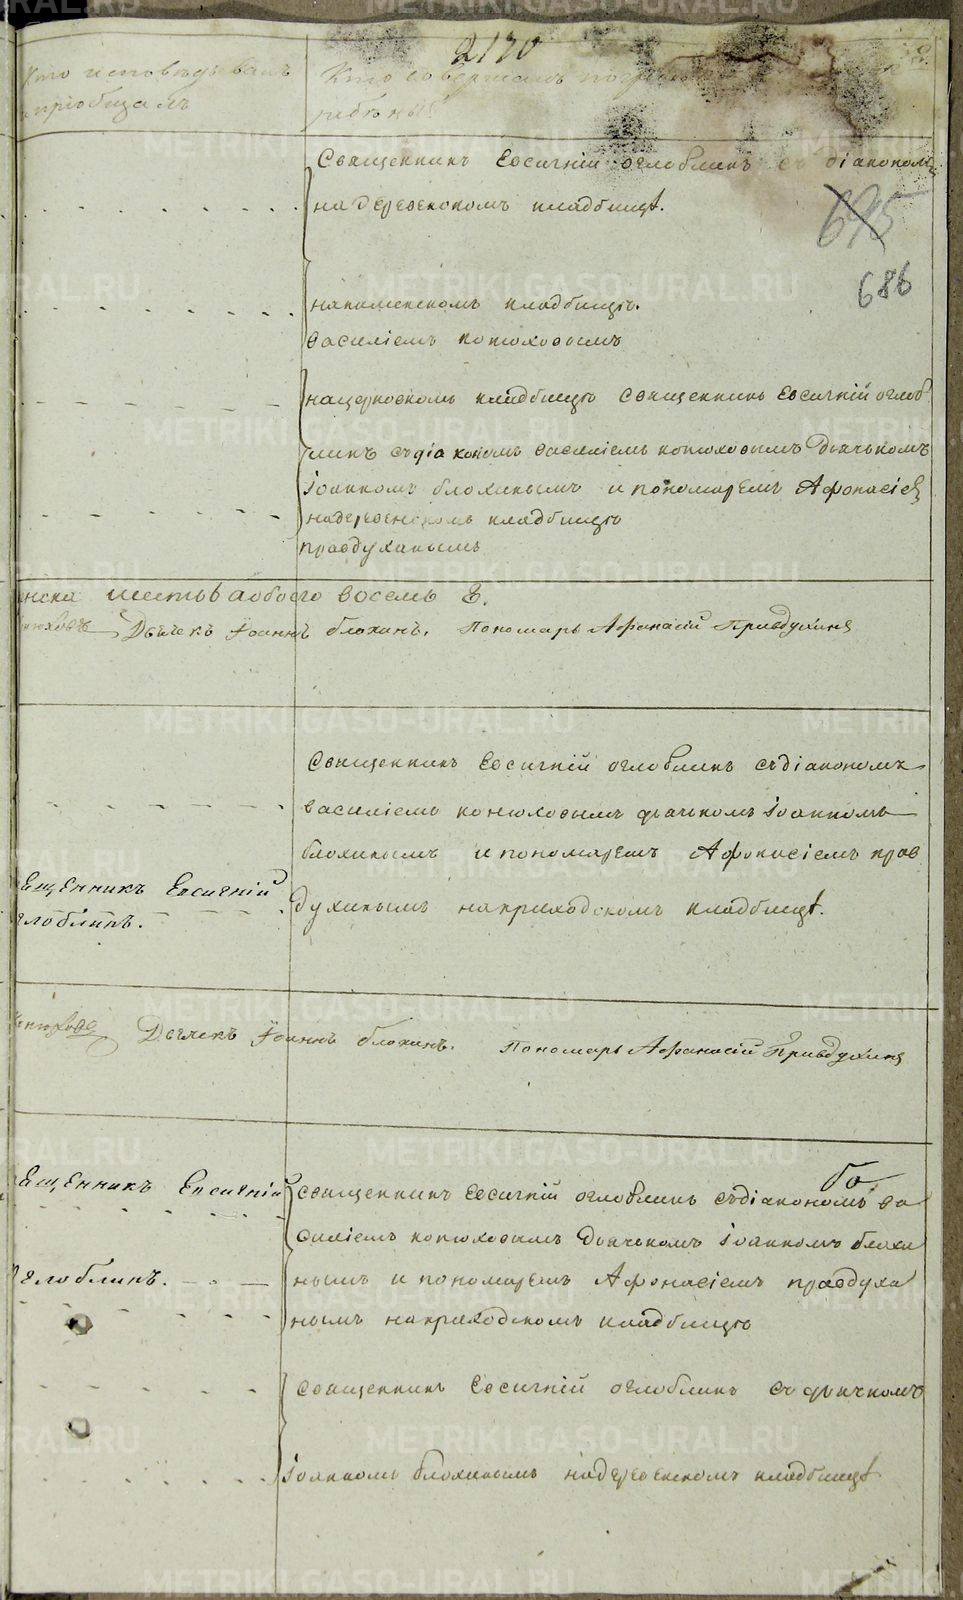 2170
Кто исповѣдывалъ
и пріобщалъ
Кто совершалъ погре
ребеніе
Священникъ Евсигній оглоблинъ съ діакономъ
на деревенскомъ кладбищѣ.
695
686
накаменскомъ кладбищѣ.
василіемъ конюховымъ
нацерковномъ кладбищѣ священникъ Евсигній оглоб
линъ съдіакономъ василіемъ конюховымъ дьячкомъ
іоанномъ блохинымъ и пономаремъ Афонасіемъ
надеревенскомъ кладбищѣ
правдухинымъ
шесть а обоего восемь 8.
нюховъ Дьячекъ Іоаннъ блохинъ. Пономарь Афанасій Правдухинъ
Священникъ Евсигній оглоблинъ съдіакономъ
василіемъ конюховымъ дьячькомъ іоанномъ
блохинымъ и пономаремъ Афонасіемъ прав
ещенникъ Евсигній
духинымъ наприходскомъ кладбищѣ.
глоблинъ.
нюховъ Дьячекъ Іоаннъ блохинъ. Пономарь Афанасій Правдухинъ
бо
ещенникъ Евсигній
священникъ Евсигній оглоблинъ съдіакономъ ва
силіемъ конюховымъ дьячькомъ іоанномъ блохи
глоблинъ.
нымъ и пономаремъ Афонасіемъ правдухи
нымъ наприходскомъ кладбищѣ
священникъ Евсигній оглоблинъ съ дьячкомъ
іоанномъ блохинымъ надеревенскомъ кладбищѣ
METRIKI.GASO-URAL.RU